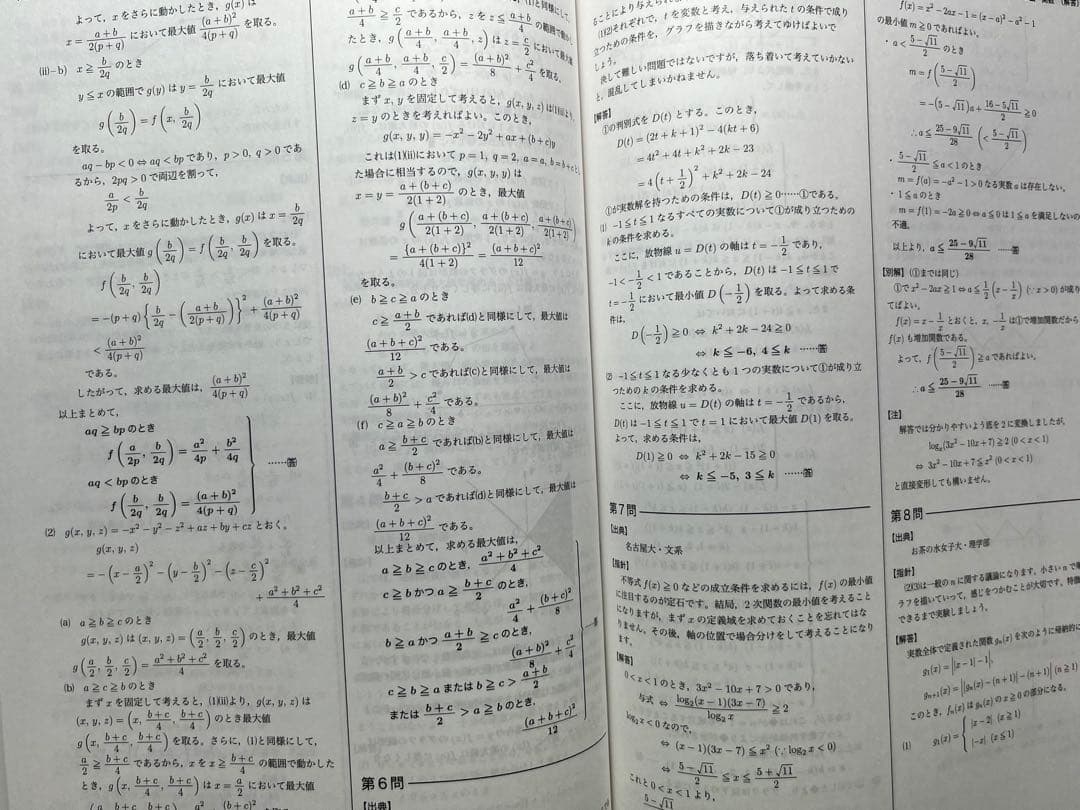 よって，xをさらに動かしたとき，g(x)は
x=(a+b)/2(p+q) において最大値 (a+b)²/4(p+q) を取る。
(ii-b) x≧b/2q のとき
y≦xの範囲でg(y)は y=b/2q において最大値
g(b/2q)=f(x, b/2q)
を取る。
aq−bp<0⇔aq<bpであり，p>0, q>0であ
るから，2pq>0で両辺を割って，
a/2p<b/2q
よって，xをさらに動かしたとき，g(x)は x=b/2q
において最大値 g(b/2q)=f(b/2q, b/2q) を取る。
f(b/2q, b/2q)
=−(p+q){b/2q−(a+b/2(p+q))}²+(a+b)²/4(p+q)
<(a+b)²/4(p+q)
である。
したがって，求める最大値は，(a+b)²/4(p+q)
以上まとめて，
aq≧bpのとき
f(a/2p, b/2q)=a²/4p+b²/4q
aq<bpのとき
f(b/2q, b/2q)=(a+b)²/4(p+q)
……答
(2) g(x, y, z)=−x²−y²−z²+ax+by+cz とおく。
g(x, y, z)
=−(x−a/2)²−(y−b/2)²−(z−c/2)²
+(a²+b²+c²)/4
(a) a≧b≧cのとき
g(x, y, z)は(x, y, z)=(a/2, b/2, c/2)のとき，最大値
g(a/2, b/2, c/2)=(a²+b²+c²)/4 を取る。
(b) a≧c≧bのとき
まずxを固定して考えると，(1)(ii)より，g(x, y, z)は
(x, y, z)=(x, (b+c)/4, (b+c)/4)のとき最大値
g(x, (b+c)/4, (b+c)/4)を取る。さらに，(1)と同様にして，
a/2≧(b+c)/4 であるから，xをx≧(b+c)/4 の範囲で動かした
とき，g(x, (b+c)/4, (b+c)/4)は x=a/2 において最大値
(d) c≧b≧aのとき
まずx, yを固定して考えると，g(x, y, z)は(1)(ii)より，
z=yのときを考えればよい。このとき，
g(x, y, y)=−x²−2y²+ax+(b+c)y
これは(1)(ii)において p=1, q=2, a=a, b=b+cとし
た場合に相当するので，g(x, y, y)は
x=y=(a+(b+c))/2(1+2) のとき，最大値
g((a+(b+c))/2(1+2), (a+(b+c))/2(1+2), (a+(b+c))/2(1+2))
={a+(b+c)}²/4(1+2)=(a+b+c)²/12
を取る。
(e) b≧c≧aのとき
c≧(a+b)/2 であれば(d)と同様にして，最大値は
(a+b+c)²/12 である。
(a+b)/2>cであれば(c)と同様にして，最大値は
(a+b)²/8+c²/4 である。
(f) c≧a≧bのとき
a≧(b+c)/2 であれば(b)と同様にして，最大値は
a²/4+(b+c)²/8 である。
(b+c)/2>aであれば(d)と同様にして，最大値は
(a+b+c)²/12 である。
以上まとめて，求める最大値は，
a≧b≧cのとき，(a²+b²+c²)/4
c≧bかつa≧(b+c)/2 のとき，
a²/4+(b+c)²/8
b≧aかつ(a+b)/2≧cのとき，
(a+b)²/8+c²/4
c≧b≧aまたはb≧c>(a+b)/2
または(b+c)/2>a≧bのとき，
(a+b+c)²/12
第６問
【出典】
(1)(2)それぞれで，tを変数と考え，与えられたtの条件で成り
立つための条件を，グラフを描きながら考えてゆけばよいで
しょう。
決して難しい問題ではないですが，落ち着いて考えていかない
と，混乱してしまいかねません。
【解答】
①の判別式をD(t)とする。このとき，
D(t)=(2t+k+1)²−4(kt+6)
=4t²+4t+k²+2k−23
=4(t+1/2)²+k²+2k−24
①が実数解を持つための条件は，D(t)≧0……①である。
(1) −1≦t≦1なるすべての実数について①が成り立つための
kの条件を求める。
ここに，放物線u=D(t)の軸はt=−1/2 であり，
−1<−1/2<1であることから，D(t)は−1≦t≦1で
t=−1/2 において最小値D(−1/2)を取る。よって求める条
件は，
D(−1/2)≧0 ⇔ k²+2k−24≧0
⇔ k≦−6, 4≦k ……答
(2) −1≦t≦1なる少なくとも1つの実数について①が成り立
つためのkの条件を求める。
ここに，放物線u=D(t)の軸はt=−1/2 であるから，
D(t)は−1≦t≦1でt=1において最大値D(1)を取る。
よって，求める条件は，
D(1)≧0 ⇔ k²+2k−15≧0
⇔ k≦−5, 3≦k ……答
第７問
【出典】
名古屋大・文系
【指針】
不等式f(x)≧0などの成立条件を求めるには，f(x)の最小値
に注目するのが定石です。結局，2次関数の最小値を考えること
になりますが，まずxの定義域を求めておくことを忘れてはな
りません。その後，軸の位置で場合分けをして考えることになり
ます。
【解答】
0<x<1のとき，3x²−10x+7>0であり，
与式 ⇔ log₂(x−1)(3x−7)/log₂x≧2
log₂x<0なので，
⇔ (x−1)(3x−7)≦x² (∵log₂x<0)
⇔ (5−√11)/2≦x≦(5+√11)/2
これと0<x<1より，
f(x)=x²−2ax−1=(x−a)²−a²−1
の最小値m≧0であればよい。
・a<(5−√11)/2 のとき
m=f((5−√11)/2)
=−(5−√11)a+(16−5√11)/2≧0
∴a≦(25−9√11)/28 (<(5−√11)/2)
・(5−√11)/2≦a<1のとき
m=f(a)=−a²−1>0なる実数aは存在しない。
・1≦aのとき
m=f(1)=−2a≧0⇔a≦0は1≦aを満足しないの
不適。
以上より，a≦(25−9√11)/28 ……答
【別解】(①までは同じ)
①でx²−2ax≧1⇔a≦1/2(x−1/x) (∵x>0)が成り
てばよい。
f(x)=x−1/x とおくと，x, −1/x は①で増加関数だから
f(x)も増加関数である。
よって，f((5−√11)/2)≧aであればよい。
∴a≦(25−9√11)/28 ……答
【注】
解答では分かりやすいよう底を2に変換しましたが，
logₓ(3x²−10x+7)≧2 (0<x<1)
⇔ 3x²−10x+7≦x² (0<x<1)
と直接変形しても構いません。
第８問
【出典】
お茶の水女子大・理学部
【指針】
(2)(3)は一般のnに関する議論になります。小さいnで
ラフを描いていって，感じをつかむことが大切です。特徴
できるまで実験しましょう。
【解答】
実数全体で定義された関数gₙ(x)を次のように帰納的に
g₁(x)=||x−1|−1|,
gₙ₊₁(x)=||gₙ(x)−(n+1)|−(n+1)| (n≧1)
このとき，fₙ(x)はgₙ(x)のx≧0の部分になる。
(1) g₁(x)={|x−2| (x≧1)
|−x| (x≦1)